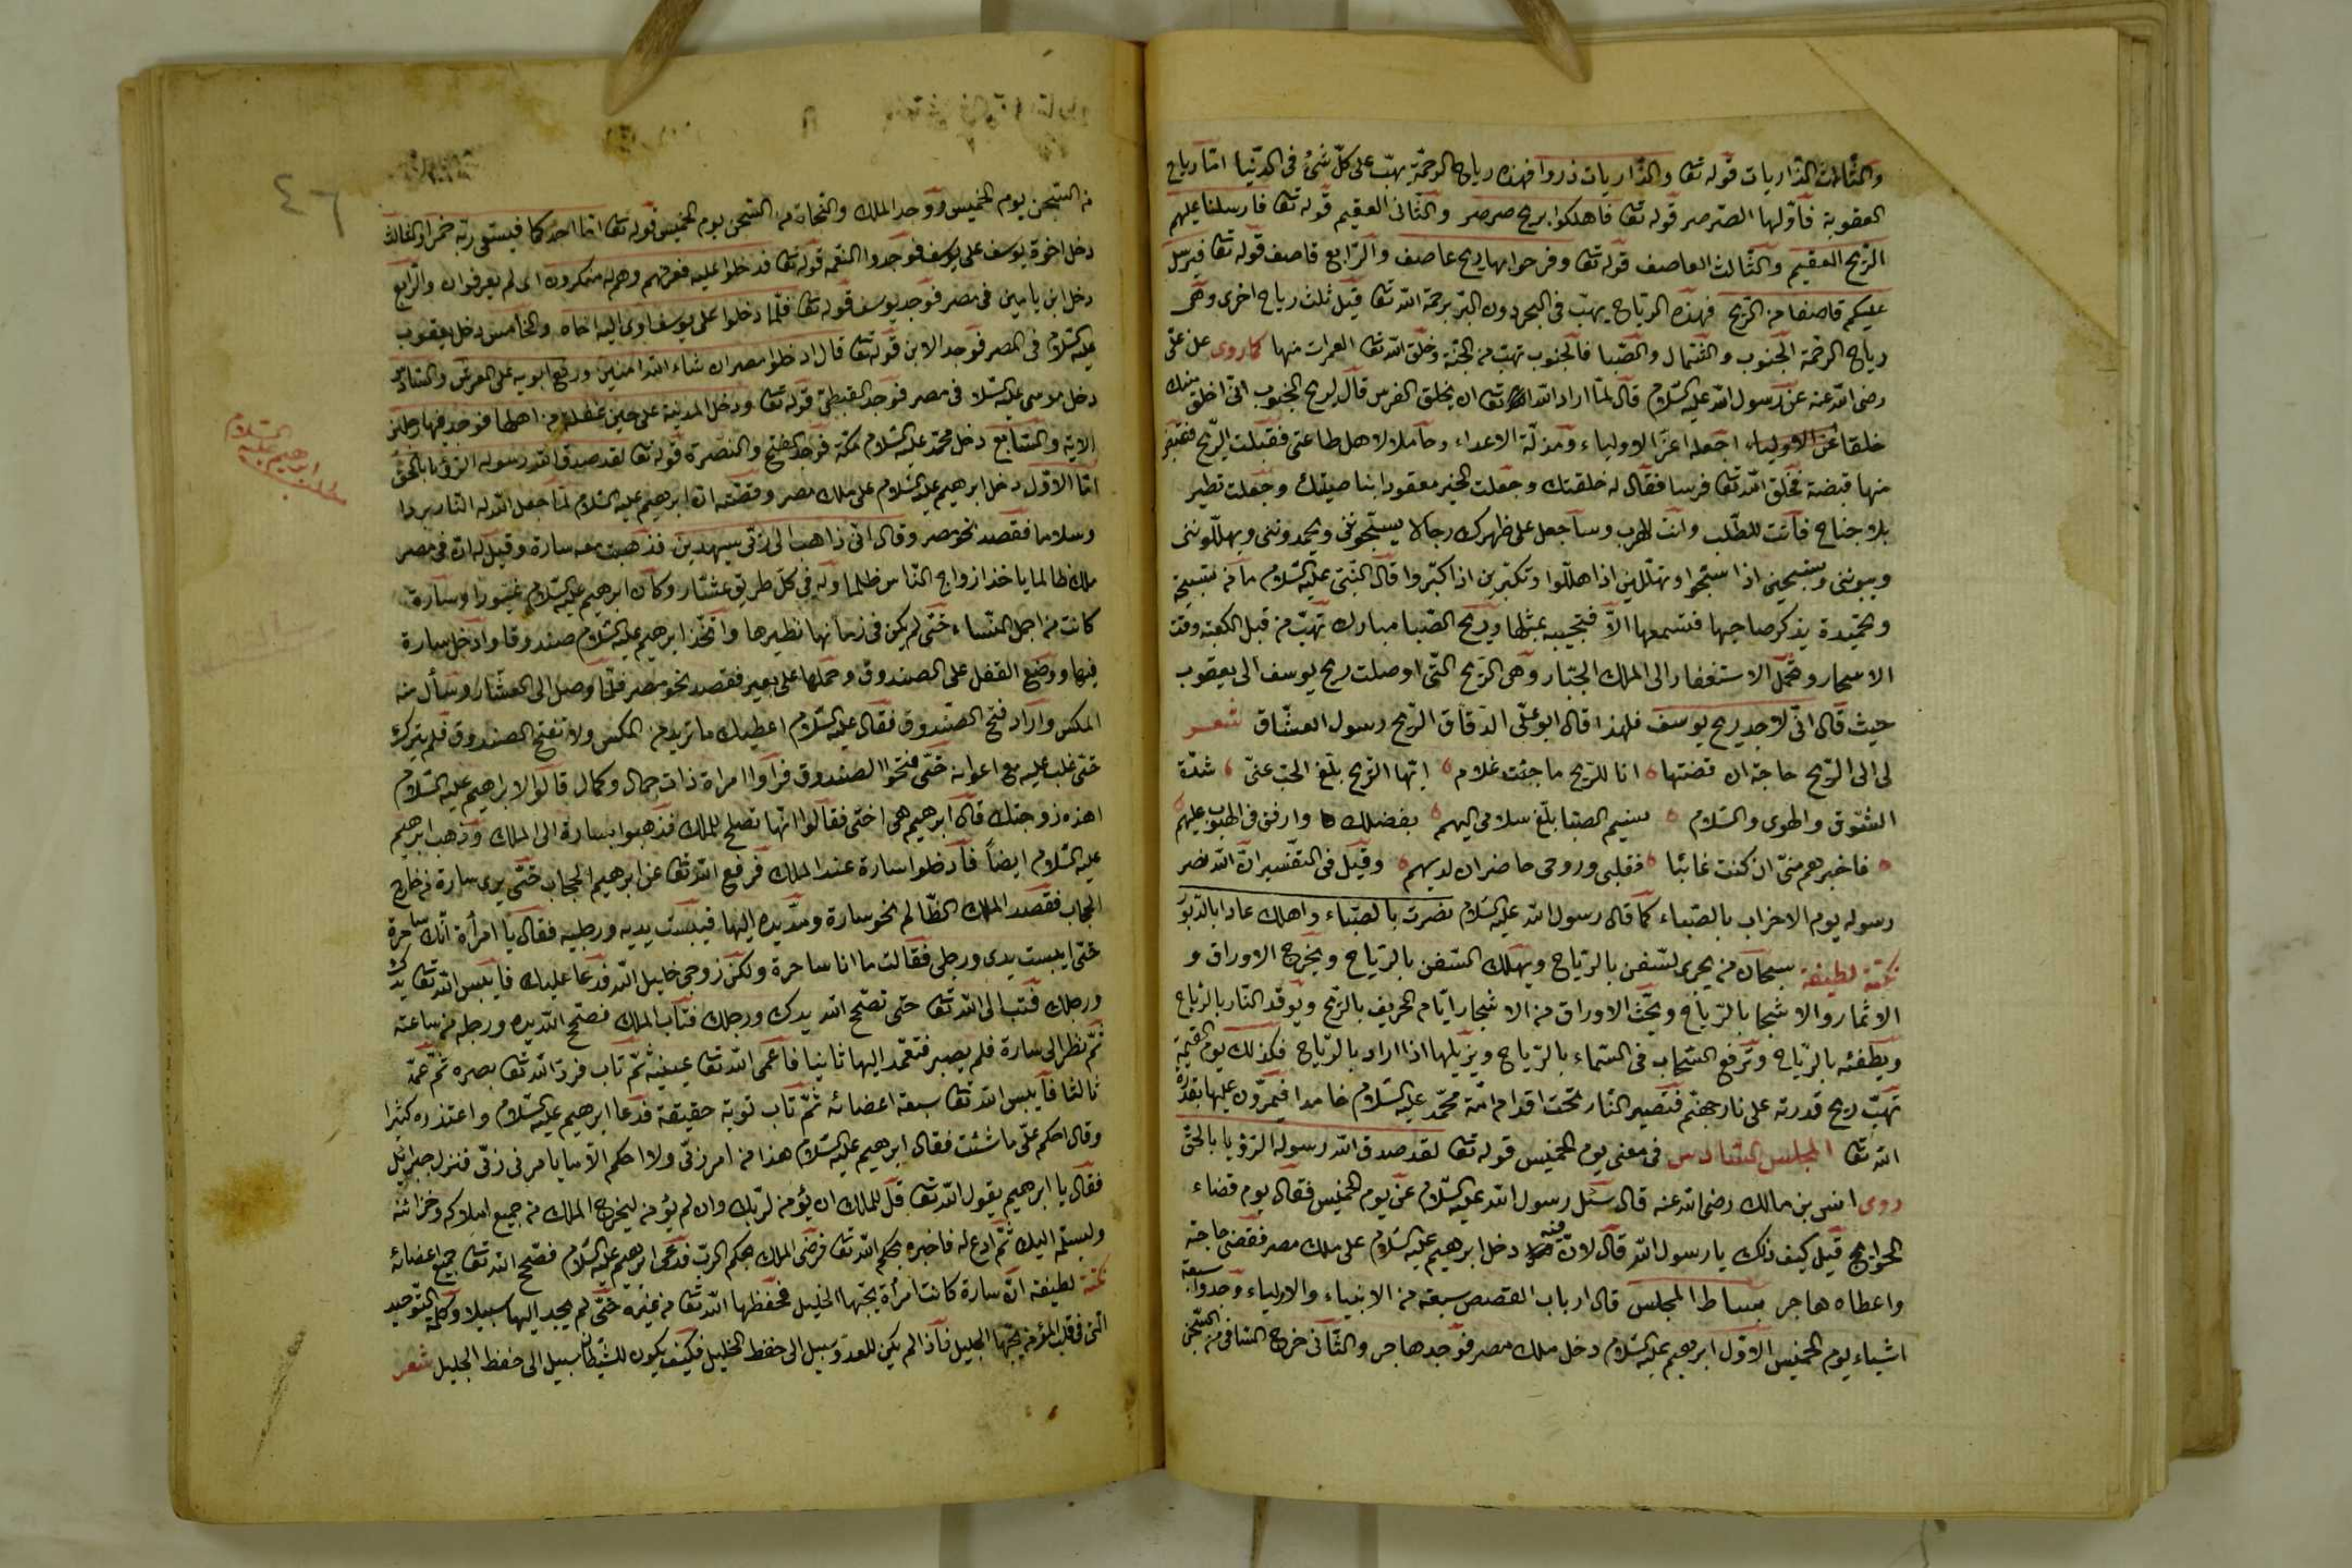 والثالث الذاريات قوله تعا والذاريات ذروا فهذه رياح الرحمة يهب على كل شئ فى الدنيا اما رياح
العقوبة فاولها الصرصر قوله تعا فاهلكوا بريح صرصر والثانى العقيم قوله تعا فارسلنا عليهم
الريح العقيم والثالث العاصف قوله تعا وفرحوا بها ريح عاصف والرابع قاصف قوله تعا فيرسل
عليكم قاصفا من الريح فهذه الرياح يهب فى البحر دون البر برحمة الله تعا قيل ثلث رياح اخرى وهى
رياح الرحمة الجنوب والشمال والصبا فالجنوب تهب من الجنة وخلق الله تعا منها كما روى عن على
رضى الله عنه عن رسول الله عليه السلام قال لما اراد الله تعا ان يخلق الفرس قال لريح الجنوب انى اخلق منك
خلقا اجعله اعز الاولياء ومذلة الاعداء وحاملا لاهل طاعتى فقبلت الريح فقبض
منها قبضة فخلق الله تعا فرسا فقال له خلقتك وجعلت الخير معقودا بناصيتك وجعلت تطير
بلا جناح فانت للطلب وانت للهرب وساجعل على ظهرك رجالا يسبحوننى ويحمدوننى ويهللوننى
وتسبحين اذا سبحوا وتهللين اذا هللوا وتكبرين اذا كبروا قال النبى عليه السلام ما من تسبيحة
وتحميدة يذكر صاحبها فتسمعها الا فتجيبه بمثلها وريح الصبا مبارك تهب من قبل الكعبة وقت
الاسحار وتحمل الاستغفار الى الملك الجبار وهى الريح التى اوصلت ريح يوسف الى يعقوب
حيث قال انى لاجد ريح يوسف فلهذا قال ابو على الدقاق الريح رسول العشاق شعر
لى الى الريح حاجة ان قضتها انا للريح ما حيت غلام ايها الريح بلغ الحب عنى شدة
الشوق والهوى والسلام نسيم الصبا بلغ سلامى اليهم بفضلك وارفق فى الهبوب عليهم
فاخبرهم منى ان كنت غائبا فقلبى وروحى حاضران لديهم وقيل فى التفسير ان الله نصر
رسوله يوم الاحزاب بالصباء كما قال رسول الله عليه السلام نصرت بالصباء واهلك عاد بالدبور
نكتة لطيفة سبحان من يجرى السفن بالرياح ويهلك السفن بالرياح ويخرج الاوراق و
الاثمار والاشجار بالرياح ويحث الاوراق من الاشجار ايام الخريف بالريح ويوقد النار بالرياح
ويطفئه بالرياح وترفع السحاب فى السماء بالرياح ويزيلها اذا اراد بالرياح فكذلك يوم القيمة
تهب ريح قدرته على نار جهنم فتصير النار تحت اقدام امة محمد عليه السلام خامدا فيمرون عليها بقدرة
الله تعا المجلس السادس فى معنى يوم الخميس قوله تعا لقد صدق الله رسوله الرؤيا بالحق
روى انس بن مالك رضى الله عنه قال سئل رسول الله عليه السلام عن يوم الخميس فقال يوم قضاء
الحوايج قيل كيف ذلك يا رسول الله قال لان فيه دخل ابرهيم عليه السلام على ملك مصر فقضى حاجته
واعطاه هاجر بساط المجلس قال ارباب القصص سبعة من الانبياء والاولياء وجدوا سبعة
اشياء يوم الخميس الاول ابرهيم عليه السلام دخل ملك مصر فوجد هاجر والثانى خرج الساقى من السجن
من السجن يوم الخميس ووجد الملك والنجاة من السجن يوم الخميس قوله تعا اما احدكما فيسقى ربه خمرا والثالث
دخل اخوة يوسف على يوسف فوجدوا النعمة قوله تعا فدخلوا عليه فعرفهم وهم له منكرون اى لم يعرفوا والرابع
دخل ابن يامين فى مصر فوجد يوسف قوله تعا فلما دخلوا على يوسف اوى اليه اخاه والخامس دخل يعقوب
عليه السلام فى المصر فوجد الابن قوله تعا قال ادخلوا مصر ان شاء الله امنين ورفع ابويه على العرش والسادس
دخل موسى عليه السلا فى مصر فوجد القبطى قوله تعا ودخل المدينة على حين غفلة من اهلها فوجد فيها رجلين
الاية والسابع دخل محمد عليه السلام مكة فوجد الفتح والنصرة قوله تعا لقد صدق الله رسوله الرؤيا بالحق
اما الاول دخل ابرهيم عليه السلام على ملك مصر وقصته ان ابرهيم عليه السلام لما جعل الله له النار بردا
وسلاما فقصد نحو مصر وقال انى ذاهب الى ربى سيهدين فذهبت معه سارة وقيل له ان فى مصر
ملك ظالما ياخذ ازواج الناس ظلما وله فى كل طريق عشار وكان ابرهيم عليه السلام غيورا وسارة
كانت من اجمل النساء حتى لم يكن فى زمانها نظيرها واتخذ ابرهيم عليه السلام صندوقا وادخل سارة
فيها ووضع القفل على الصندوق وحملها على بعير فقصد نحو مصر فلما وصل الى العشار وسأل منه
المكس واراد فتح الصندوق فقال عليه السلام اعطيك ما تريد من المكس ولا تفتح الصندوق فلم يترك
حتى غلب عليه مع اعوانه حتى فتحوا الصندوق فراوا امراة ذات جمال وكمال قالوا لابراهيم عليه السلام
اهذه زوجتك قال ابرهيم هى اختى فقالوا انها تصلح للملك فذهبوا بسارة الى الملك وذهب ابرهيم
عليه السلام ايضا فادخلوا سارة عند الملك فرفع الله تعا عن ابرهيم الحجاب حتى يرى سارة من خارج
الحجاب فقصد الملك الظالم نحو سارة ومد يده اليها فيبست يديه ورجليه فقال يا امرأة انك ساحرة
حتى ايبست يدى ورجلى فقالت ما انا ساحرة ولكن زوجى خليل الله فدعا عليك فايبس الله تعا يدك
ورجلك فتب الى الله تعا حتى تصح الله يدك ورجلك فتاب الملك فصح الله يده ورجله من ساعته
ثم نظر الى سارة فلم يصبر فتعمد اليها ثانيا فاعمى الله تعا عينيه ثم تاب فرد الله تعا بصره ثم عمد
ثالثا فايبس الله تعا سبعة اعضائه ثم تاب توبة حقيقة فدعا ابرهيم عليه السلام واعتذره كثيرا
وقال احكم على ما شئت فقال ابرهيم عليه السلام هذا من امر ربى ولا احكم الا بما يامرنى ربى فنزل جبرائيل
فقال يا ابرهيم يقول الله تعا قل للملك ان يؤمن لربك وان لم يؤمن ليخرج الملك من جميع املاكه وخزائنه
وليسلم اليك ثم ادع له فاخبره بحكم الله تعا فرضى الملك بحكم الرب فدعى ابرهيم عليه السلام فصح الله تعا جميع اعضائه
نكتة لطيفة ان سارة كانت امرأة يحبها الخليل فحفظها الله تعا من غيره حتى لم يجد اليها سبيلا وكلمة التوحيد
التى فى قلب المؤمن يحبها الجليل فاذا لم يكن للعدو سبيل الى حفظ الخليل فكيف يكون للشيطان سبيل الى حفظ الجليل شعر
ابرهيم عليه السلام
٤٦